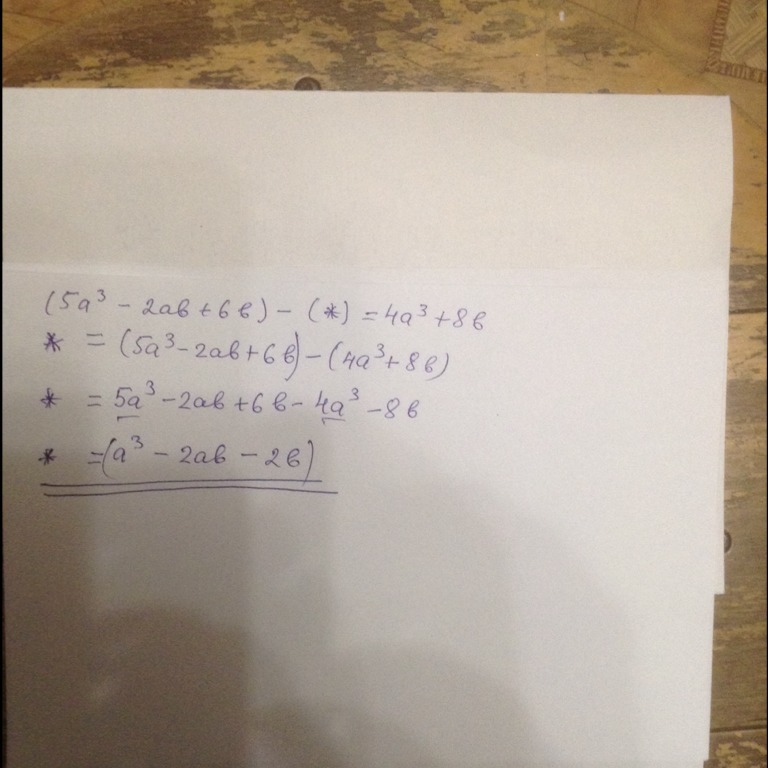 (5a³ - 2aв + 6в) - (*) = 4a³ + 8в
* = (5a³ - 2aв + 6в) - (4a³ + 8в)
* = 5a³ - 2aв + 6в - 4a³ - 8в
* = (a³ - 2aв - 2в)